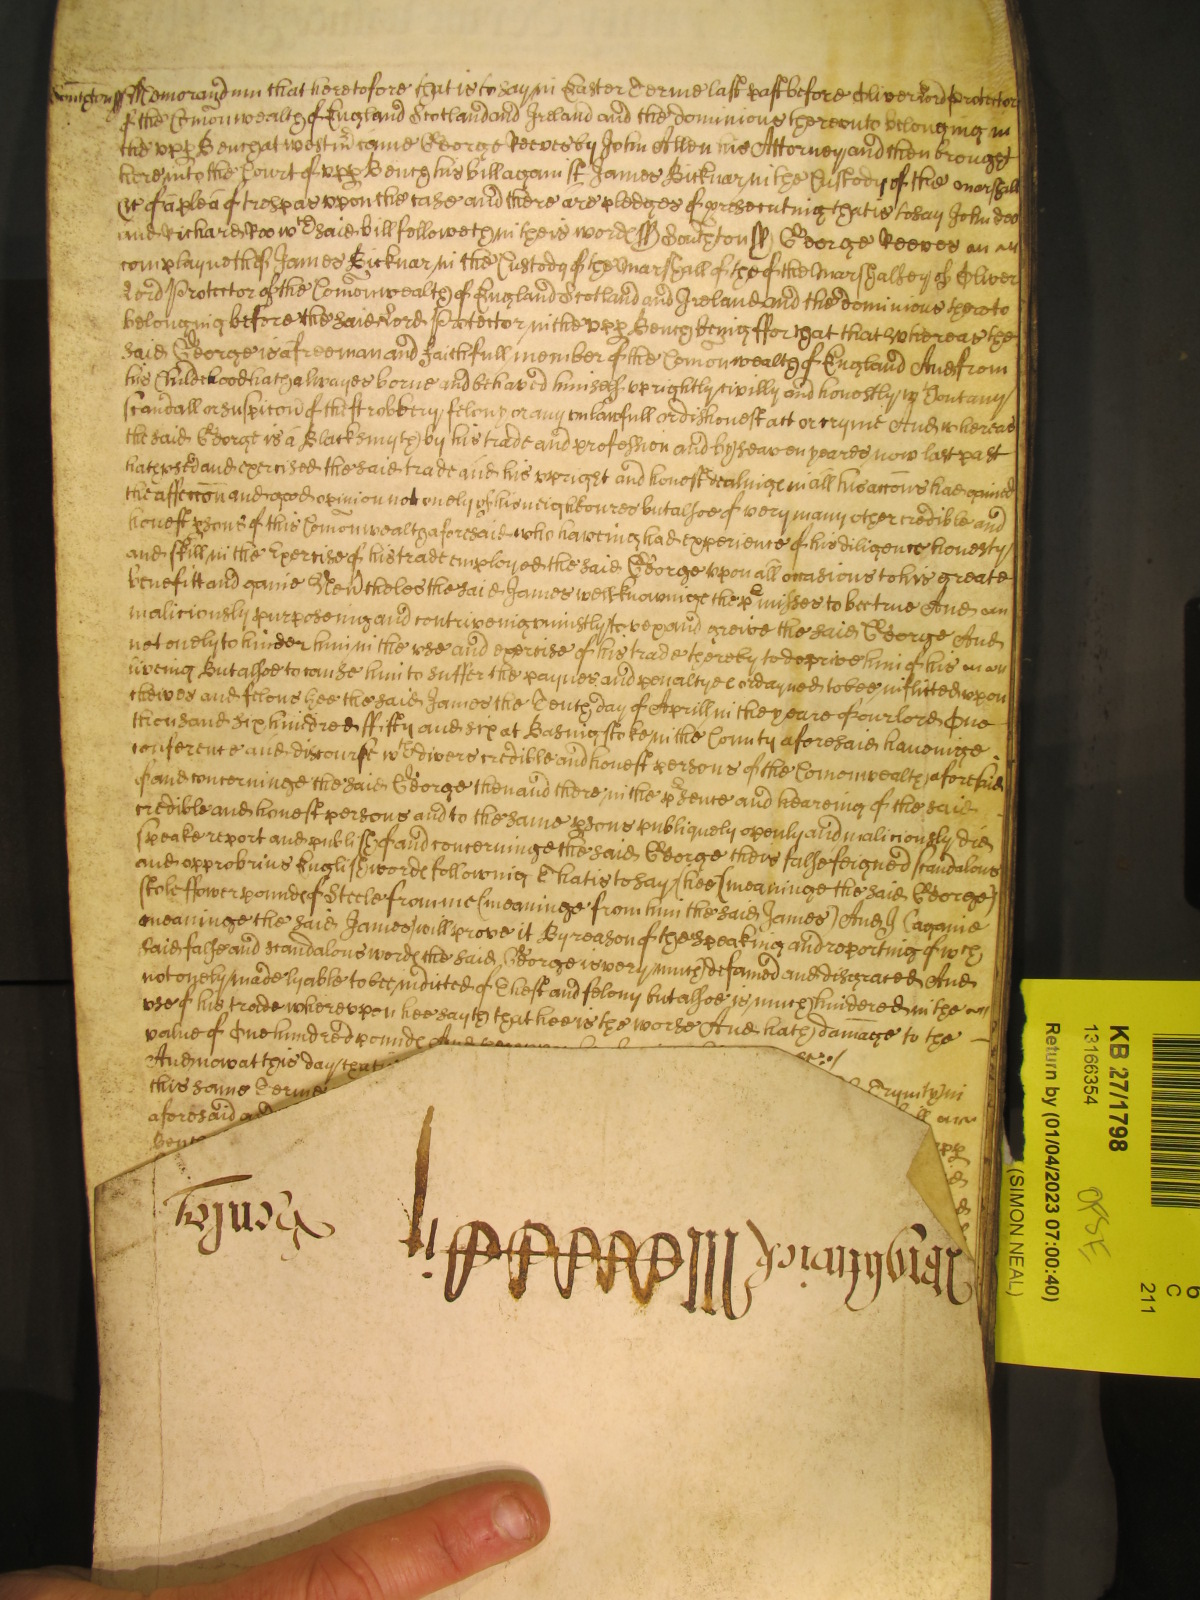 Southton ss Memorandum that heretofore that is to say in Easter Terme last past before Oliver Lord Protector
of the Comonwealth of England Scotland and Ireland and the dominions thereunto belonging in
the upp Bench at Westmr came George Reeves by John Allen his Attorney and then brought
here into the Court of upp Bench his bill against James Bicknar in the Custody of the marshall
&c of a plea of trespas upon the case and there are pledges of prosecuting that is to say John doo
and Richard Roo wch said bill followeth in theis words ss Southton ss George Reeves
complayneth of James Bicknar in the Custody of the Marshall of the of the Marshalsey of Oliver
Lord Protector of the Comonwealth of England Scotland and Ireland and the dominions thereto
belonging before the said Lord Protector in the upp Bench being ffor that that whereas the
said George is a freeman and faithfull member of the Comonwealth of England And from
his Childehood hath alwayes borne and behaved himself uprightly civilly and honestly wthout any
scandall or suspicon of theft robbery felony or any unlawfull or dishonest act or cryme And whereas
the said George is a Blacksmyth by his trade and profession and by seaven yeares now last past
hath used and exercised the said trade and his upright and honest dealinge in all his accons had gained
the affeccon and good opinion not onely of his neighboures but alsoe of very many other credible and
honest psons of this Comonwealth aforesaid who haveing had experience of his diligence honesty
and skill in the Exercise of his trade employed the said George upon all occasions to his greate
benefitt and gaine Neverthelesse the said James well knowinge the pmisses to bee true And
maliciously purposeing and contriveing uniustly to vex and greive the said George And
not onely to hinder him in the use and exercise of his trade thereby to deprive him of his
liveing But alsoe to cause him to suffer the paynes and penaltyes ordayned to bee inflicted upon
theives and felons hee the said James the Tenth day of Aprill in the yeare of our lord One
thousand six hundred ffifty and six at Basingstoke in the County aforesaid haveinge
conference and discourse wth divers credible and honest persons of the Comonwealth aforesaid
of and concerninge the said George then and there in the psence and heareing of the said
credible and honest persons and to the same psons publiquely openly and maliciously did
speake report and publish of and concerninge the said George theis false feigned scandalous
and opprobrius English words following That is to say hee (meaninge the said George)
stole ffower pounds of Steele from me (meaninge from him the said James) And I (againe
meaninge the said James) will prove it By reason of the speaking and reporting of wch
said false and scandalous words the said George is very much defamed and disgraced And
not onely made lyable to bee indicted of Theft and felony but alsoe is much hindered in the
use of his trade whereupon hee sayth that hee is the worse And hath damage to the
value of One hundred pounds And
And now at this day that
this same Terme Trynity in
aforesaid and
Benc
Wightwick
Venit
KB 27/1798
13166354
Return by (01/04/2023 07:00:40)
(SIMON NEAL)
6
C
211